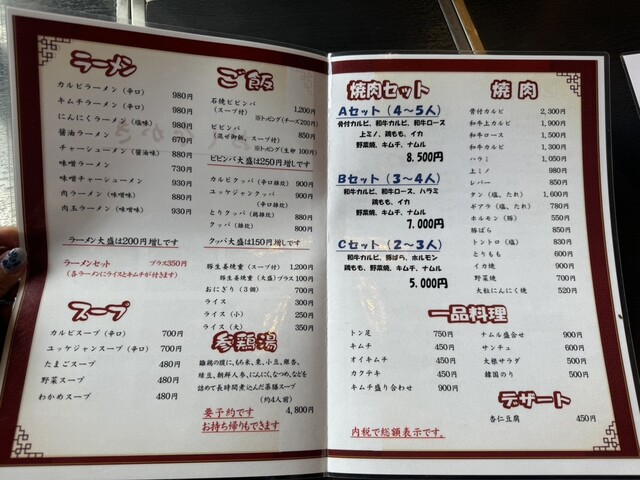 ラーメン
カルビラーメン（辛口） 980円
キムチラーメン（辛口） 980円
にんにくラーメン（塩味） 980円
醤油ラーメン 670円
チャーシューメン（醤油味） 880円
味噌ラーメン 730円
味噌チャーシューメン 930円
肉ラーメン（味噌味） 880円
肉玉ラーメン（味噌味） 930円
ラーメン大盛は200円増しです
ラーメンセット プラス350円
（各ラーメンにライスとキムチが付きます）
スープ
カルビスープ（辛口） 700円
ユッケジャンスープ（辛口） 700円
たまごスープ 480円
野菜スープ 480円
わかめスープ 480円
ご飯
石焼ビビンバ 1,200円
（スープ付） ※トッピング（チーズ200円）
ビビンバ 850円
（混ぜ御飯、スープ付）
※トッピング（生卵 100円）
ビビンバ大盛は250円増しです
カルビクッパ （辛口雑炊） 900円
ユッケジャンクッパ 900円
（辛口雑炊）
とりクッパ（鶏雑炊） 880円
クッパ（雑炊） 800円
クッパ大盛は150円増しです
豚生姜焼重（スープ付） 1,200円
豚生姜焼重（大盛）プラス100円
おにぎり（3個） 700円
ライス 300円
ライス（小） 250円
ライス（大） 350円
参鶏湯
雛鶏の腹に、もち米、栗、小豆、銀杏、
緑豆、朝鮮人参、にんにく、なつめ、などを
詰めて長時間煮込んだ薬膳スープ
（約4人前）
要予約です 4,800円
お持ち帰りもできます
焼肉セット
Aセット（4〜5人）
骨付カルビ、和牛カルビ、和牛ロース
上ミノ、鶏もも、イカ
野菜焼、キムチ、ナムル
8.500円
Bセット（3〜4人）
和牛カルビ、和牛ロース、ハラミ
鶏もも、イカ
野菜焼、キムチ、ナムル
7.000円
Cセット（2〜3人）
和牛カルビ、豚ばら、ホルモン
鶏もも、野菜焼、キムチ、ナムル
5.000円
焼肉
骨付カルビ 2,300円
和牛上カルビ 1,900円
和牛ロース 1,500円
和牛カルビ 1,300円
ハラミ 1,050円
上ミノ 980円
レバー 850円
タン（塩、たれ） 1,600円
ギアラ（塩、たれ） 750円
ホルモン（豚） 550円
豚ばら 850円
トントロ（塩） 830円
とりもも 660円
イカ焼 900円
野菜焼 700円
大粒にんにく焼 520円
一品料理
トン足 750円
キムチ 450円
オイキムチ 450円
カクテキ 450円
キムチ盛り合わせ 900円
ナムル盛合せ 900円
サンチュ 600円
大根サラダ 500円
韓国のり 500円
デザート
杏仁豆腐 450円
内税で総額表示です。